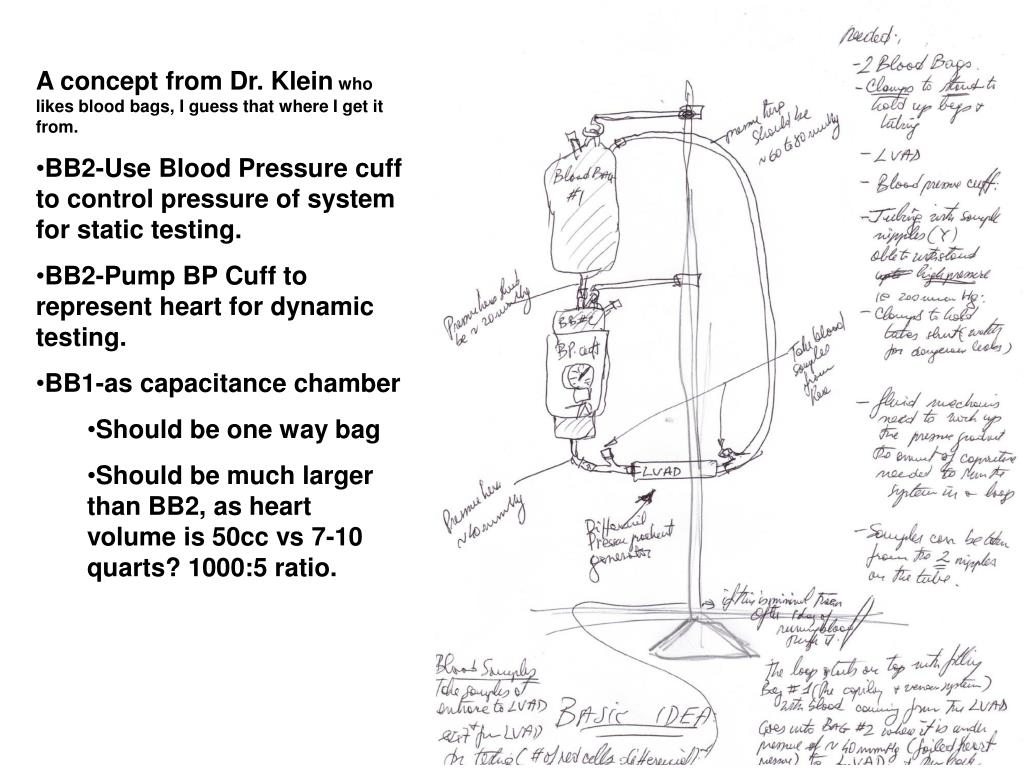 A concept from Dr. Klein who
likes blood bags, I guess that where I get it
from.
•BB2-Use Blood Pressure cuff
to control pressure of system
for static testing.
•BB2-Pump BP Cuff to
represent heart for dynamic
testing.
•BB1-as capacitance chamber
•Should be one way bag
•Should be much larger
than BB2, as heart
volume is 50cc vs 7-10
quarts? 1000:5 ratio.
Blood BAG
#1
BB#2
BP. cuff
LVAD
pressure here
should be
~60 to 80 mmHg
Pressure here should
be ~20 mmHg
Pressure here
~40 mmHg
Take blood
samples
from
Here
Differencial
Pressure
generator
needed:
-2 Blood Bags.
-Clamps to stand to
hold up bags +
tubing
- LVAD
- Blood pressure cuff.
-Tubing with sample
nipples (Y)
able to withstand
high pressure
ie 200 mm Hg.
- Clamps to hold
tubes shut (
for dangerous leaks)
- fluid mechanics
need to work up
the pressure gradient
the amount of capacitance
needed to run the
system in a loop
-Samples can be taken
from the 2 nipples
on the tube.
if this is minimal
after 1 day of
running blood
Blood Samples
Take samples at
entrance to LVAD
exit from LVAD
for testing ( # of red cells differencial)
BASIC IDEA
The loop starts on top with filling
Bag #1 (the capilary + venous system)
with blood coming from the LVAD
goes into BAG #2 where it is under
pressure of ~40 mmHg (failed heart
pressure) to LVAD